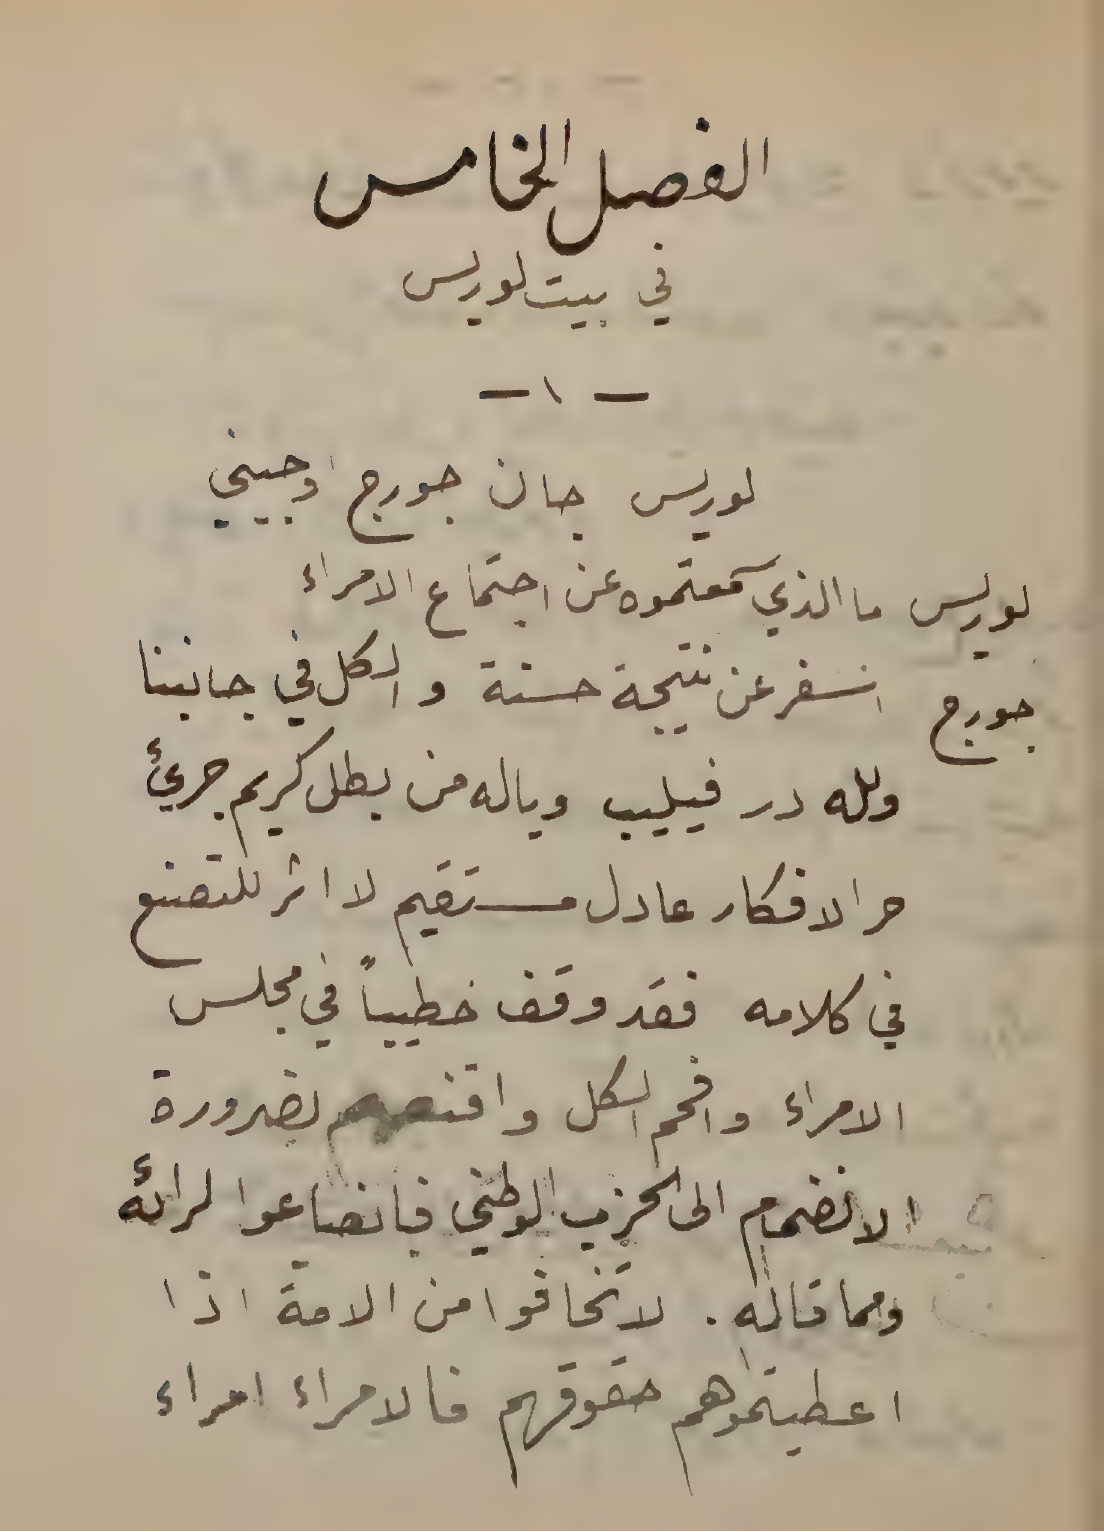 الفصل الخامس
في بيت لوريس
— ١ —
لوريس جان جورج اوجيني
لوريس ما الذي سمعتموه عن اجتماع الامراء
جورج انسفر عن نتيجة حسنة والكل في جانبنا
ولله در فيليب وياله من بطل كريم جريئ
حر الافكار عادل مستقيم لا اثر للتصنع
في كلامه فقد وقف خطيباً في مجلس
الامراء وافحم الكل واقنعهم بضرورة
الانضمام الى الحزب الوطني فانصاعوا لرائه
ومما قاله . لا تخافوا من الامة اذا
اعطيتموهم حقوقهم فالامراء امراء